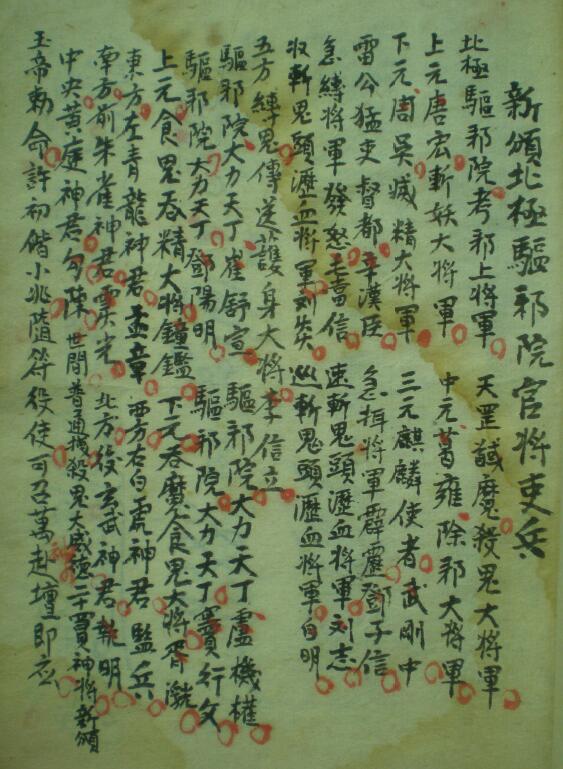 新頒北極驅邪院官將吏兵
北極驅邪院考邪上將軍 天罡馘魔殺鬼大將軍
上元唐宏斬妖大將軍 中元葛雍除邪大將軍
下元周吳滅精大將軍 三元麒麟使者武剛中
雷公猛吏督都辛漢臣 急捉將軍霹靂鄧子信
急縛將軍發怒孟嘉信 速斬鬼頭瀝血將軍刘志
收斬鬼頭瀝血將軍刘 巡斬鬼頭瀝血將軍白明
五方縛鬼傳送護身大將李信立
驅邪院大力天丁崔舒宣 驅邪院大力天丁盧機權
驅邪院大力天丁鄧陽明 驅邪院大力天丁竇行文
上元食鬼吞精大將鐘鑑 下元吞魔食鬼大將
東方左青龍神君孟章 西方右白虎神君監兵
南方前朱雀神君灵光 北方後玄武神君執明
中央黃庭神君勾陳 世間普通捉殺鬼大威德二十神將新頒
玉帝勅命許初偕小兆隨符役使可召萬赴壇即应